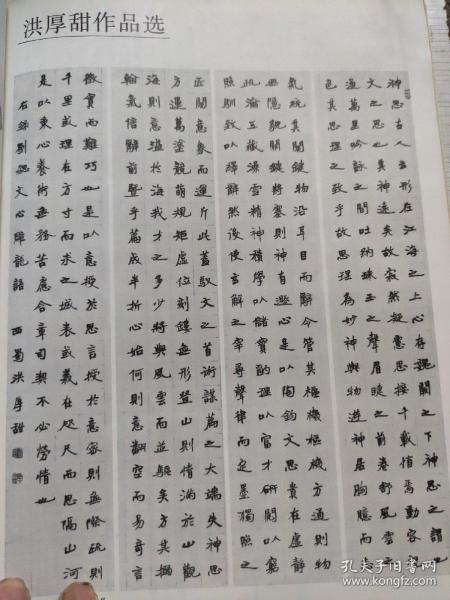 洪厚甜作品选
神思古人云形在江海之上心存魏闕之下神思之謂也
文之思也其神遠矣故寂然凝慮思接千載悄焉動容視
通萬里吟詠之間吐納珠玉之聲眉睫之前卷舒風雲之
色其思理之致乎故思理為妙神與物遊神居胸臆而志
氣統其關鍵物沿耳目而辭令管其樞機樞機方通則物
無隱貌關鍵將塞則神有遯心是以陶鈞文思貴在虛靜
疏瀹五藏澡雪精神積學以儲寶酌理以富才研閱以窮
照馴致以繹辭然後使玄解之宰尋聲律而定墨獨照之
匠闚意象而運斤此蓋馭文之首術謀篇之大端夫神思
方運萬塗競萌規矩虛位刻鏤無形登山則情滿於山觀
海則意溢於海我才之多少將與風雲而並驅矣方其搦
翰氣倍辭前暨乎篇成半折心始何則意翻空而易奇言
徵實而難巧也是以意授於思言授於意密則無際疏則
千里或理在方寸而求之域表或義在咫尺而思隔山河
是以秉心養術無務苦慮含章司契不必勞情也
右錄劉勰文心雕龍語 西蜀洪厚甜
孔夫子旧书网